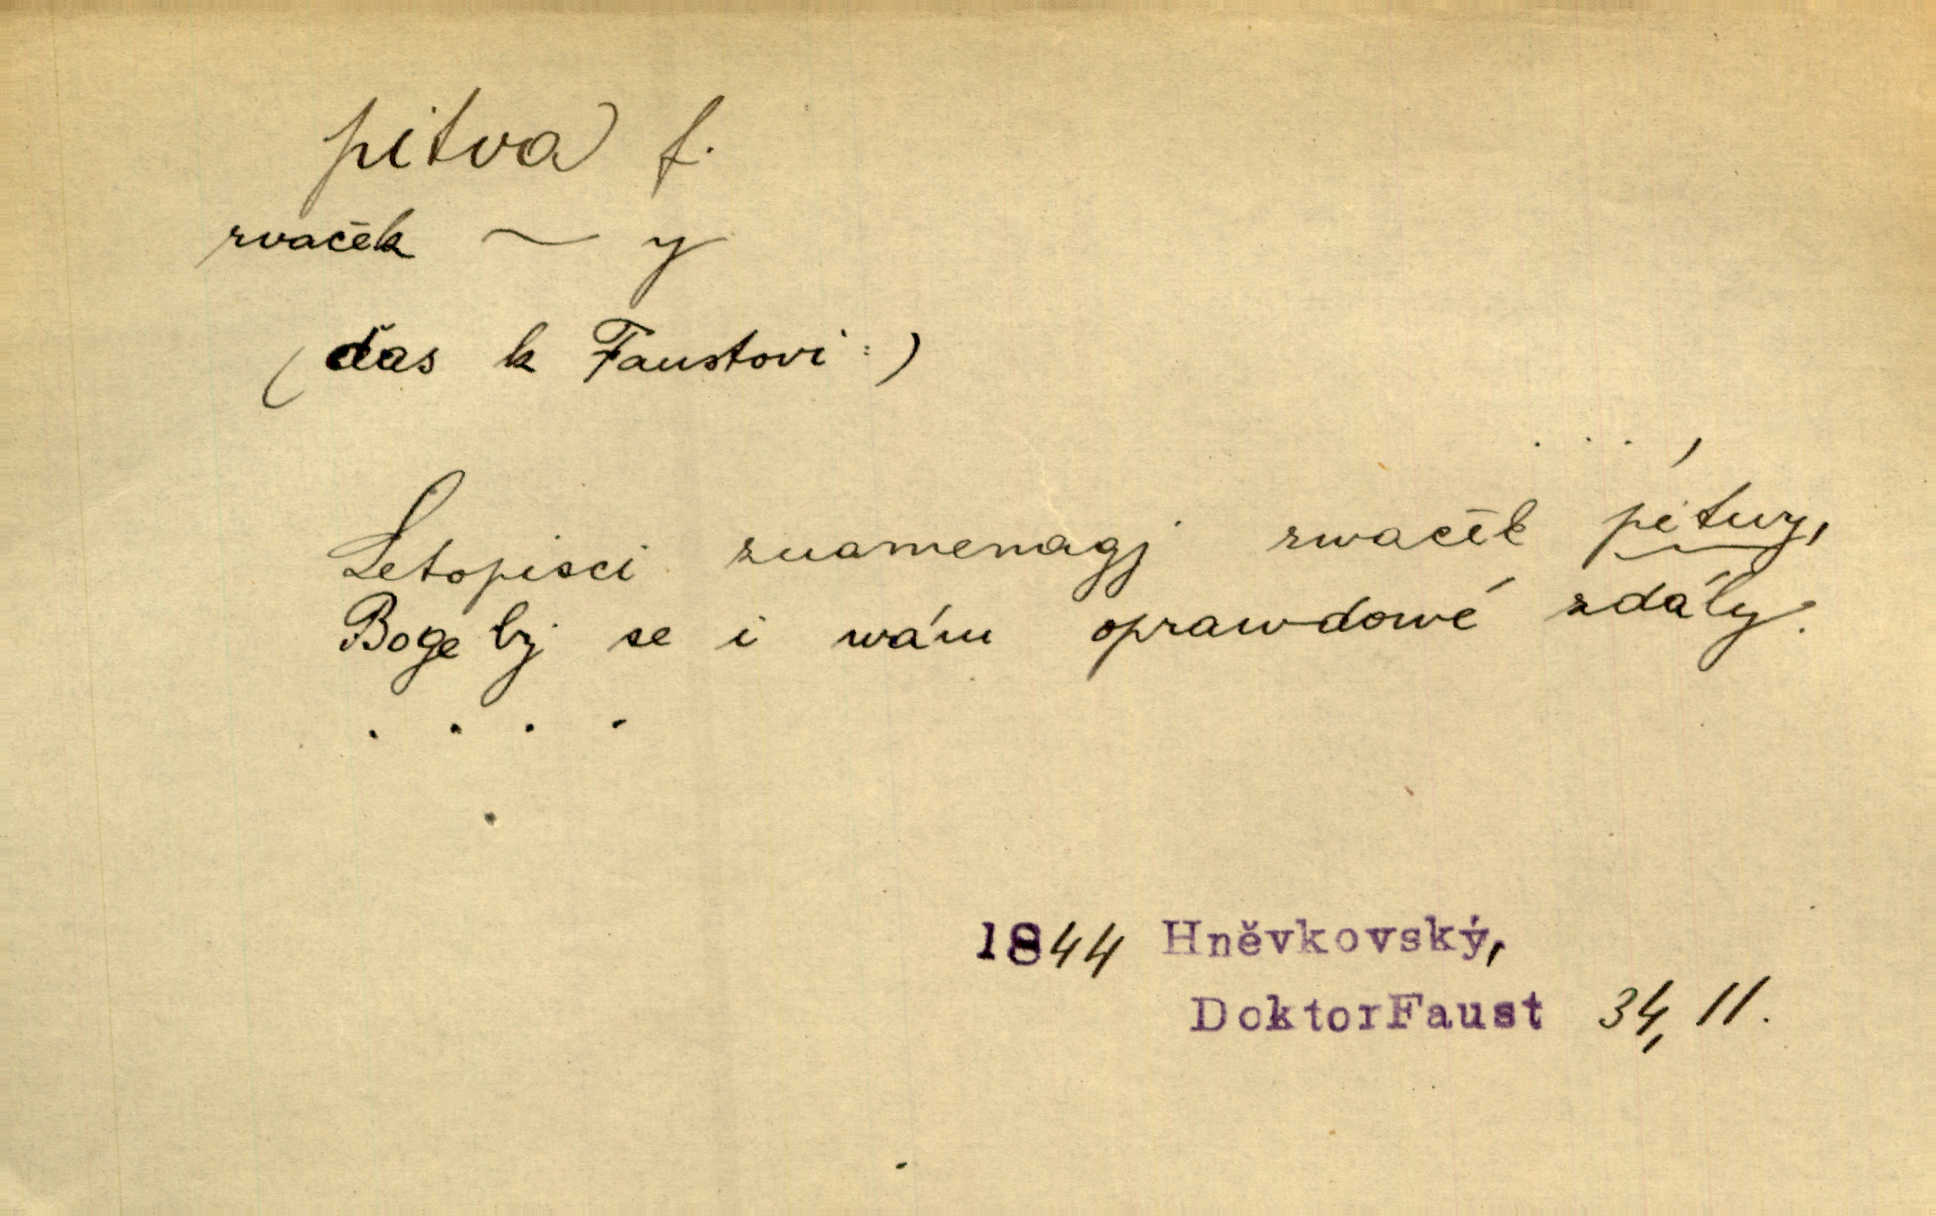 pitva f.
rvaček ~ y
(ďas k Faustovi:)
. . . ,
Letopisci znamenagj rwaček pitwy,
Boge bj se i wám oprawdowé zdály.
. . . .
1844 Hněvkovský,
DoktorFaust 34, 11.